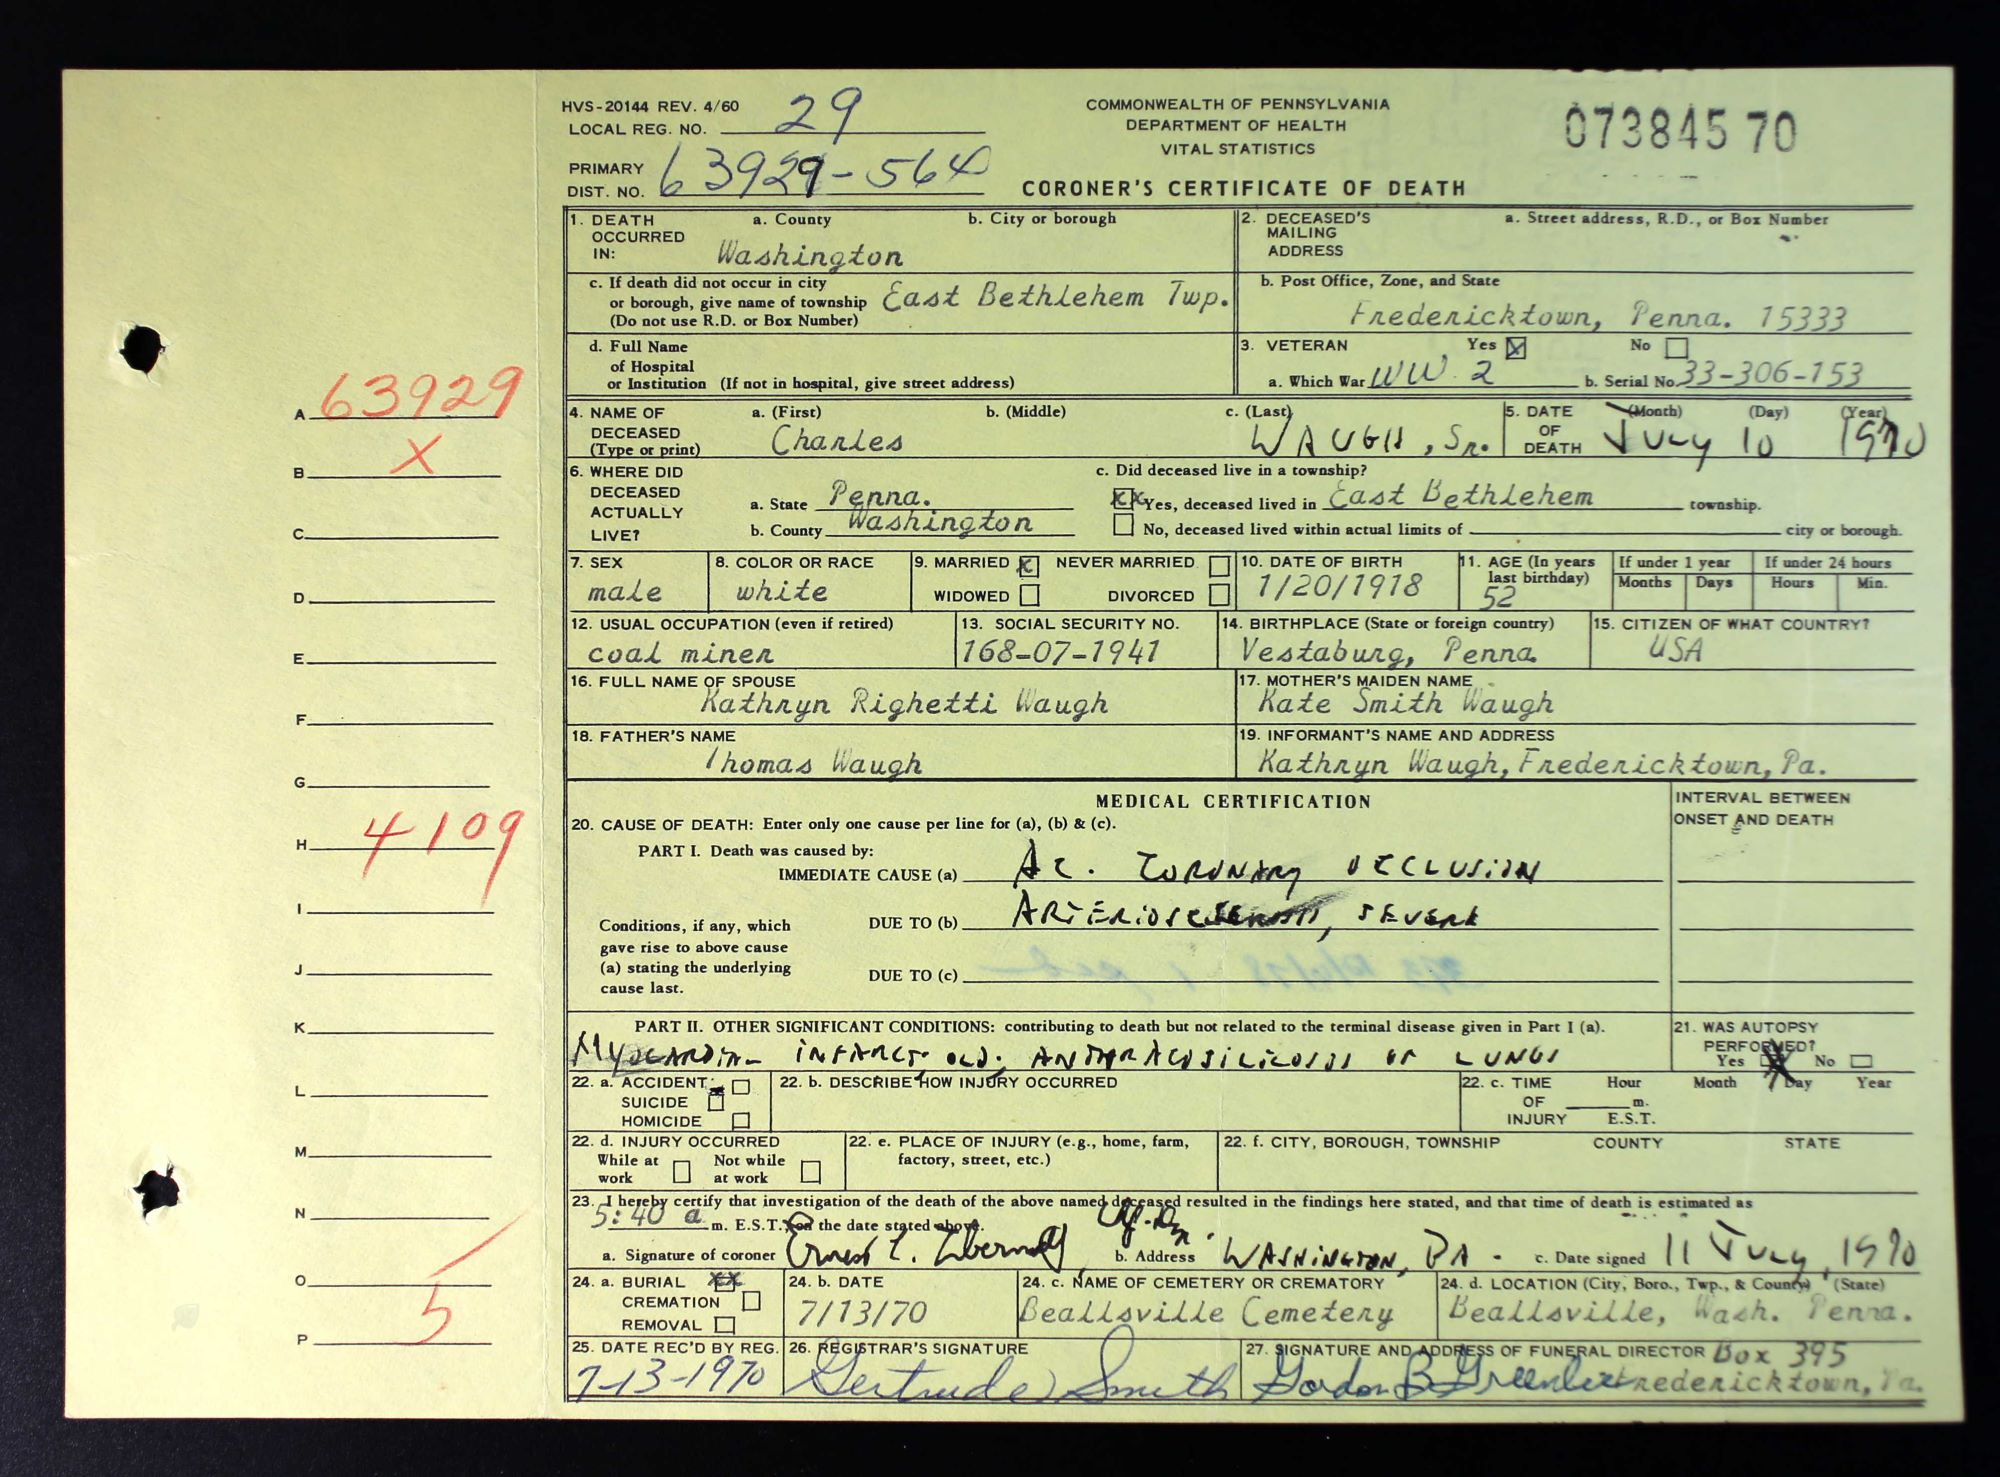 HVS-20144 REV. 4/60
LOCAL REG. NO. 29
PRIMARY DIST. NO. 63929-564
COMMONWEALTH OF PENNSYLVANIA
DEPARTMENT OF HEALTH
VITAL STATISTICS
CORONER'S CERTIFICATE OF DEATH
073845 70
1. DEATH OCCURRED IN: a. County Washington b. City or borough
2. DECEASED'S MAILING ADDRESS a. Street address, R.D., or Box Number
c. If death did not occur in city or borough, give name of township (Do not use R.D. or Box Number) East Bethlehem Twp.
b. Post Office, Zone, and State Fredericktown, Penna. 15333
d. Full Name of Hospital or Institution (If not in hospital, give street address)
3. VETERAN Yes X No
a. Which War WW 2 b. Serial No. 33-306-153
4. NAME OF DECEASED (Type or print) a. (First) Charles b. (Middle) c. (Last) WAUGH, Sr.
5. DATE OF DEATH (Month) (Day) (Year) July 10 1970
6. WHERE DID DECEASED ACTUALLY LIVE? a. State Penna.
b. County Washington
c. Did deceased live in a township?
XX Yes, deceased lived in East Bethlehem township.
No, deceased lived within actual limits of city or borough.
7. SEX male
8. COLOR OR RACE white
9. MARRIED X NEVER MARRIED
WIDOWED DIVORCED
10. DATE OF BIRTH 1/20/1918
11. AGE (In years last birthday) 52
If under 1 year Months Days
If under 24 hours Hours Min.
12. USUAL OCCUPATION (even if retired) coal miner
13. SOCIAL SECURITY NO. 168-07-1941
14. BIRTHPLACE (State or foreign country) Vestaburg, Penna
15. CITIZEN OF WHAT COUNTRY? USA
16. FULL NAME OF SPOUSE Kathryn Righetti Waugh
17. MOTHER'S MAIDEN NAME Kate Smith Waugh
18. FATHER'S NAME Thomas Waugh
19. INFORMANT'S NAME AND ADDRESS Kathryn Waugh, Fredericktown, Pa.
MEDICAL CERTIFICATION
INTERVAL BETWEEN ONSET AND DEATH
20. CAUSE OF DEATH: Enter only one cause per line for (a), (b) & (c).
PART I. Death was caused by:
IMMEDIATE CAUSE (a) AC. CORONARY OCCLUSION
Conditions, if any, which gave rise to above cause (a) stating the underlying cause last.
DUE TO (b) ARTERIOSCLEROSIS, SEVERE
DUE TO (c)
PART II. OTHER SIGNIFICANT CONDITIONS: contributing to death but not related to the terminal disease given in Part I (a).
MYOCARDIAL INFARCT, OLD; ANTHRACOSILICOSIS OF LUNGS
21. WAS AUTOPSY PERFORMED?
Yes X No
22. a. ACCIDENT
SUICIDE
HOMICIDE
22. b. DESCRIBE HOW INJURY OCCURRED
22. c. TIME OF INJURY Hour m. E.S.T. Month Day Year
22. d. INJURY OCCURRED
While at work Not while at work
22. e. PLACE OF INJURY (e.g., home, farm, factory, street, etc.)
22. f. CITY, BOROUGH, TOWNSHIP COUNTY STATE
23. I hereby certify that investigation of the death of the above named deceased resulted in the findings here stated, and that time of death is estimated as
5:40 a m. E.S.T. on the date stated above.
a. Signature of coroner Ernest L. b. Address WASHINGTON, PA. c. Date signed 11 July, 1970
24. a. BURIAL XX
CREMATION
REMOVAL
24. b. DATE 7/13/70
24. c. NAME OF CEMETERY OR CREMATORY Beallsville Cemetery
24. d. LOCATION (City, Boro., Twp., & County) (State) Beallsville, Wash. Penna.
25. DATE REC'D BY REG. 7-13-1970
26. REGISTRAR'S SIGNATURE Gertrude Smith
27. SIGNATURE AND ADDRESS OF FUNERAL DIRECTOR Box 395
Gordon B Greenlee Fredericktown, Pa.
A 63929
B X
C
D
E
F
G
H 4109
I
J
K
L
M
N
O
P 5